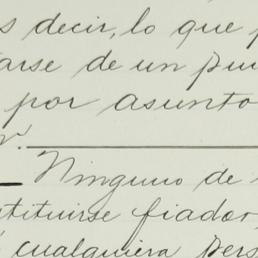 s decir, lo que p
arse de un pun
por asunto
r.
Ninguno de
stituirse fiador,
cualquiera pers